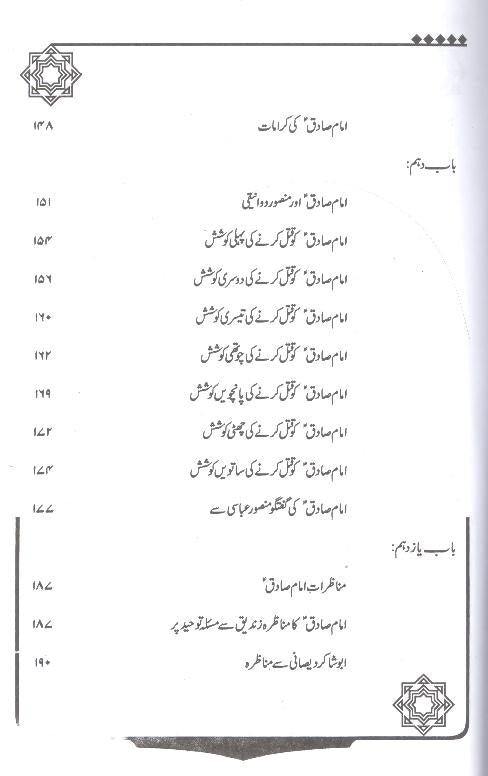 امام صادقؑ کی کرامات ۱۴۸
باب دہم:
امام صادقؑ اور منصور دوانیقی ۱۵۱
امام صادقؑ کو قتل کرنے کی پہلی کوشش ۱۵۴
امام صادقؑ کو قتل کرنے کی دوسری کوشش ۱۵۶
امام صادقؑ کو قتل کرنے کی تیسری کوشش ۱۶۰
امام صادقؑ کو قتل کرنے کی چوتھی کوشش ۱۶۲
امام صادقؑ کو قتل کرنے کی پانچویں کوشش ۱۶۹
امام صادقؑ کو قتل کرنے کی چھٹی کوشش ۱۷۲
امام صادقؑ کو قتل کرنے کی ساتویں کوشش ۱۷۴
امام صادقؑ کی گفتگو منصور عباسی سے ۱۷۷
باب یازدہم:
مناظراتِ امام صادقؑ ۱۸۷
امام صادقؑ کا مناظرہ زندیق سے مسئلہ توحید پر ۱۸۷
ابو شاکر دیصانی سے مناظرہ ۱۹۰